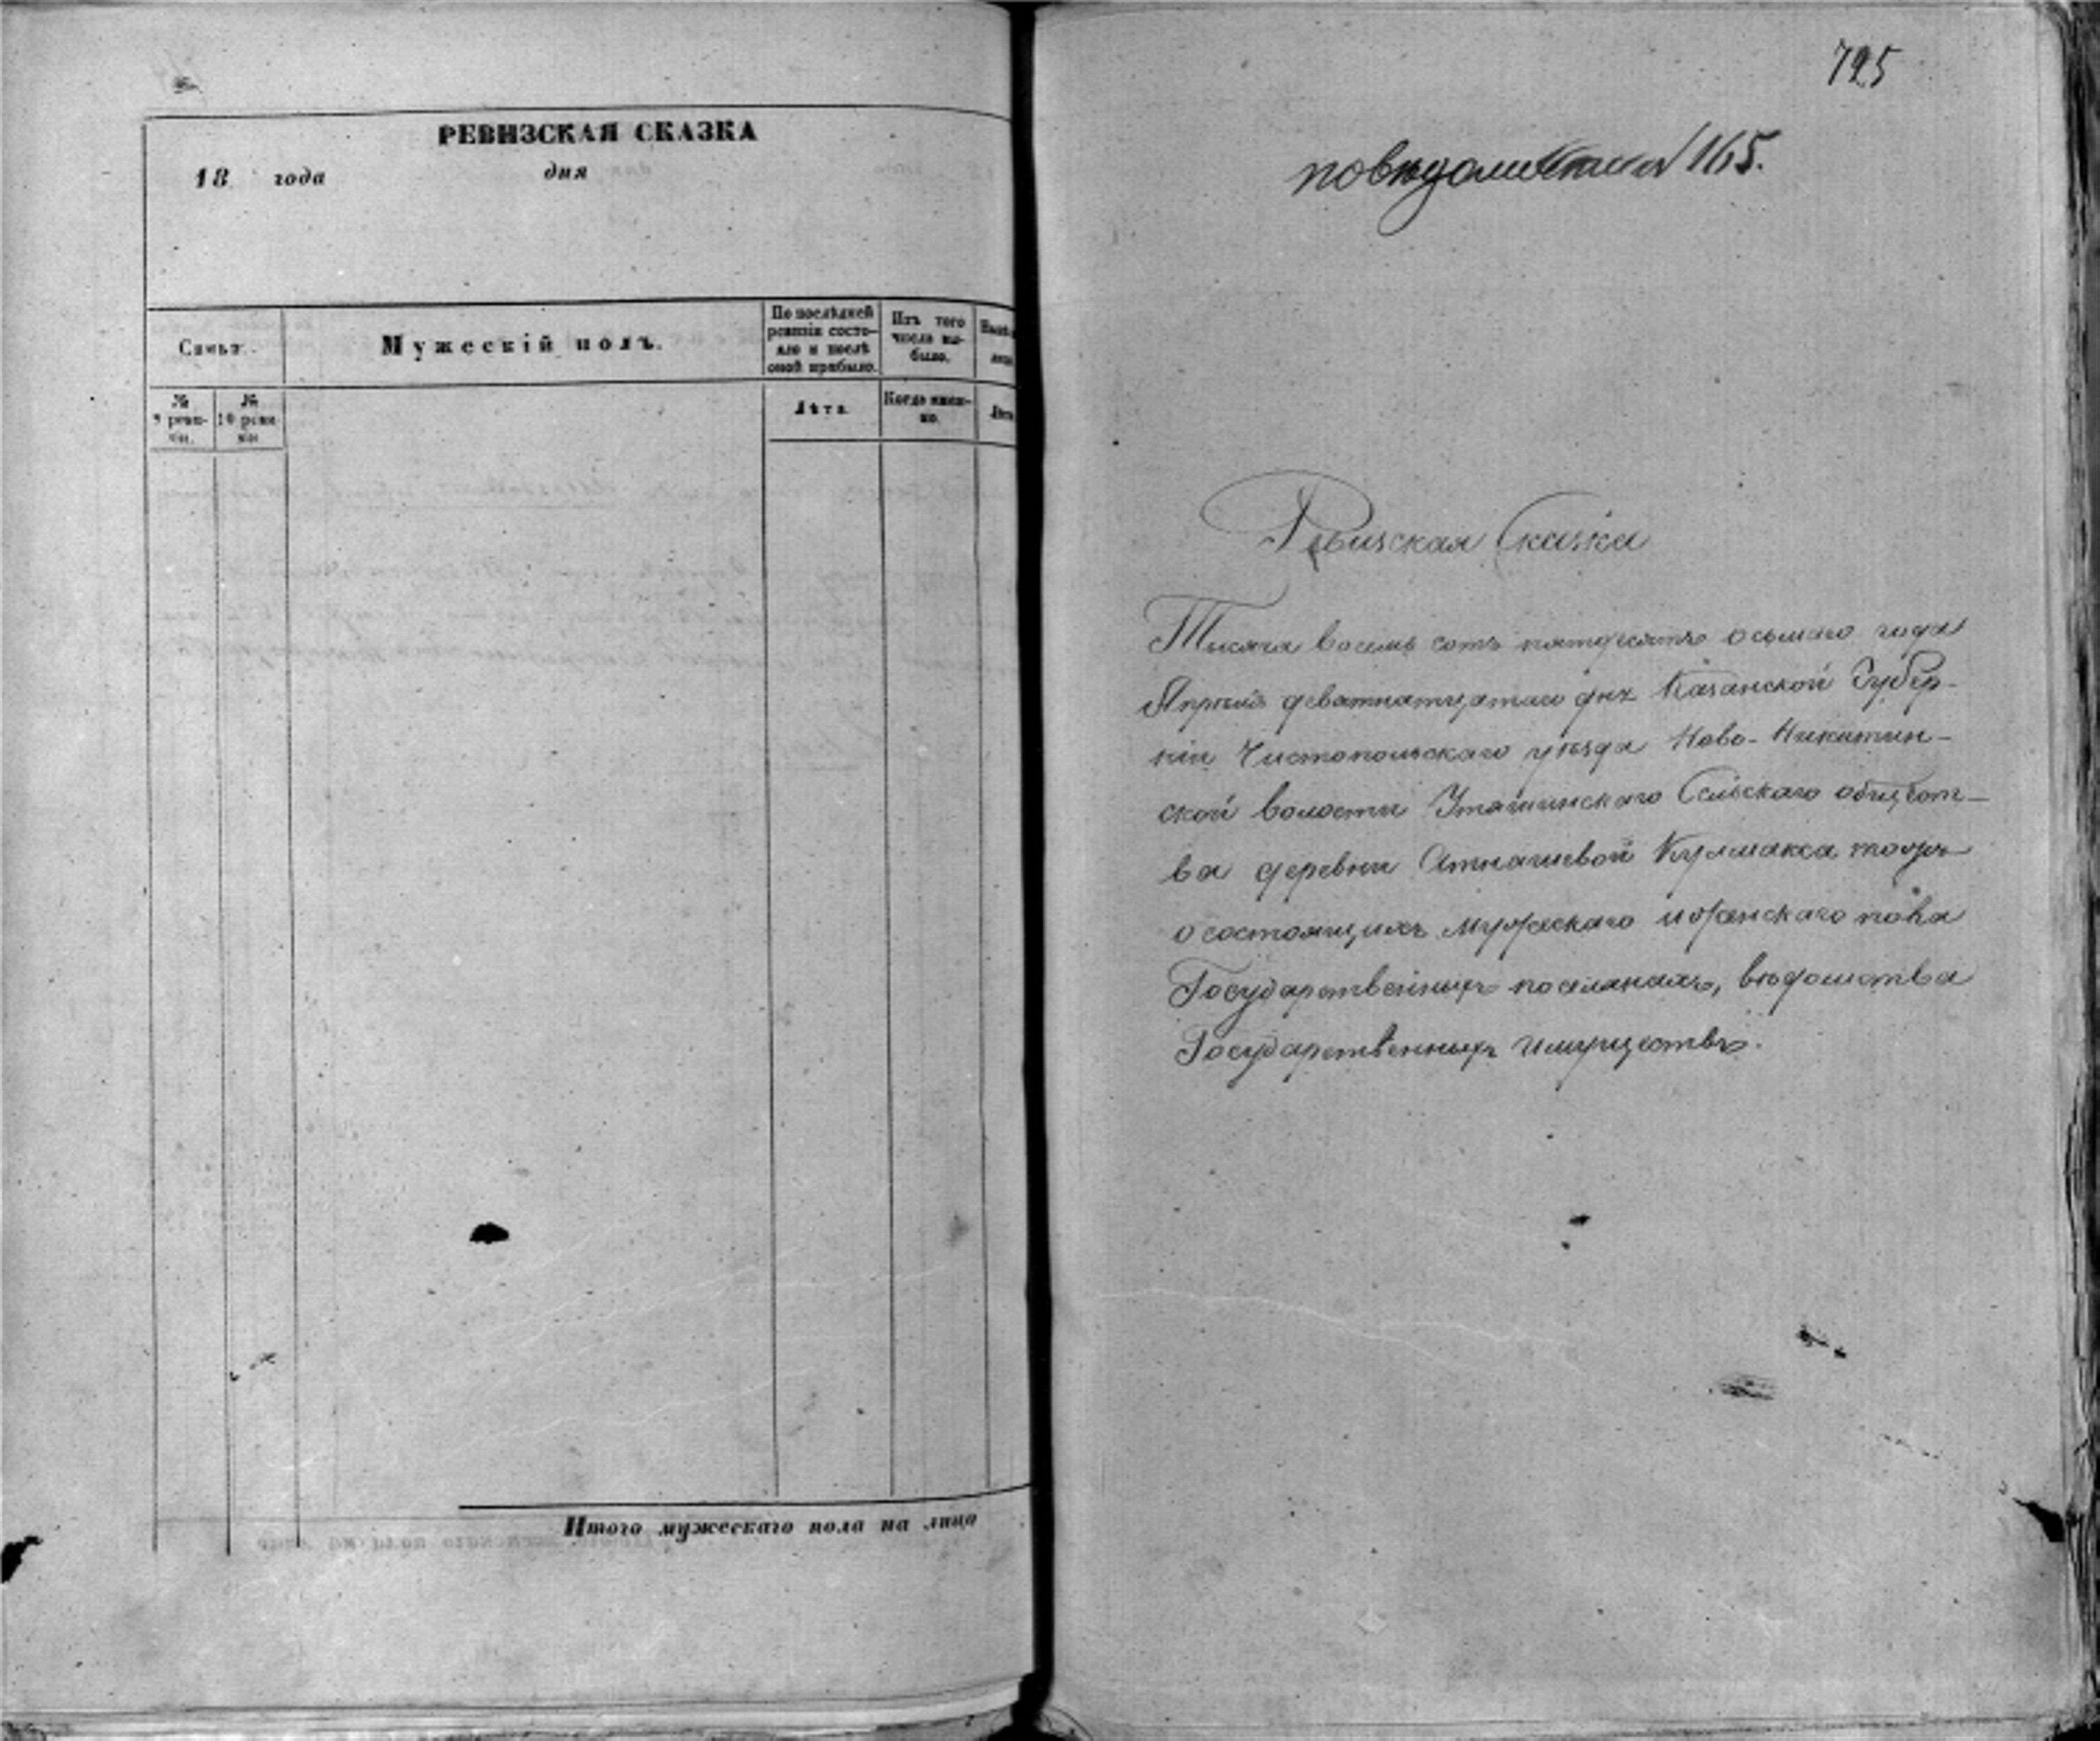 РЕВИЗСКАЯ СКАЗКА
18 года дня
Семьи.
Мужескій полъ.
По послѣдней
ревизіи состо-
яло и послѣ
оной прибыло.
Изъ того
числа вы-
было.
№
9 реви-
зіи.
№
10 реви-
зіи
Лѣта.
Когда имен-
но.
Итого мужескаго пола на лицо
725
по вѣдомости 165.
Ревизская Сказка
Тысяча восемь сотъ пятдесятъ осьмаго года
Апрѣля девятнатцатаго дня Казанской Губер-
ніи Чистопольскаго уѣзда Ново-Никитин-
ской волости Утяшинскаго Сельскаго общест-
ва деревни Атнашевой Кулмакса тожъ
о состоящихъ мужескаго и женскаго пола
Государственныхъ поселянахъ, вѣдомства
Государственныхъ имуществъ.